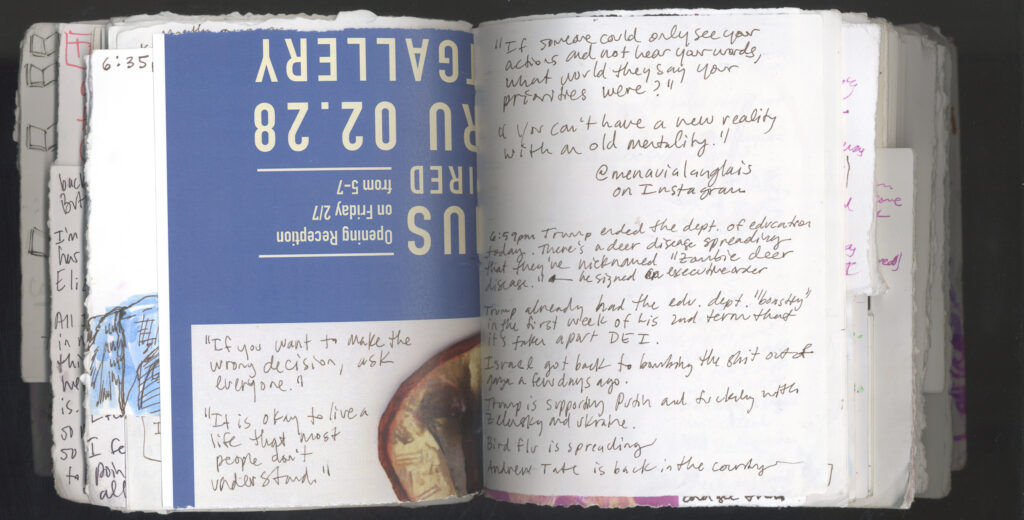 6:35
back
But
I'm
Eli
All
in
is.
so
I
all
TGALLERY
RU 02.28
IRED
from 5–7
on Friday 2/7
Opening Reception
IUS
"If you want to make the
wrong decision, ask
everyone."
"It is okay to live a
life that most
people don't
understand."
"If someone could only see your
actions and not hear your words,
what would they say your
priorities were?"
"You can't have a new reality
with an old mentality."
@menavialanglais
on Instagram
6:59pm Trump ended the dept. of education
today. There's a deer disease spreading
that they've nicknamed "Zombie deer
disease." ← he signed an executive order
Trump already had the edu. dept. "boasting"
in the first week of his 2nd term that
it's taken apart DEI.
Israel got back to bombing the shit out of
gaza a few days ago.
Trump is supporting Putin and fuckery with
Zelensky and Ukraine.
Bird flu is spreading
Andrew Tate is back in the country